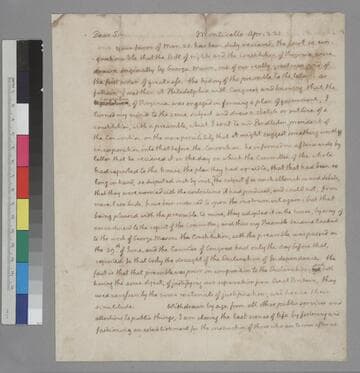 Dear Sir Monticello Apr. 3. 25
Your favor of Mar. 28. has been duly recieved. the fact is un-
questionable that the Bill of rights and the constitution of Virginia were
drawn originally by George Mason, one of our really great men, and of
the first order of greatness. the history of the preamble to the latter is
I was then at Philadelphia with Congress; and knowing that the
of Virginia was engaged in forming a plan of government, I
turned my mind to the same subject, and drew a sketch or outline of a
constitution, with a preamble, which I sent to mr Pendleton, president of
the Convention, on the mere possibility that it might suggest something worth
incorporation into that before the Convention. he informed me afterwards by
letter that he recieved it on the day on which the Committee of the whole
had reported to the house the plan they had agreed to; that that had been so
long in hand, so disputed inch by inch, the subject of so much altercation and debate,
that they were worried with the contentions it had produced, and could not, from
mere lassitude, have been induced to open the instrument again: but that
being pleased with the preamble to mine, they adopted it in the house, by way of
amendment to the report of the committee; and thus my Preamble became tacked
to the work of George Mason. the Constitution, with the preamble, was passed on
the 29th of June, and the Committee of Congress had only the day before that,
reported to that body the draught of the Declaration of Independance. the
fact is that that preamble was prior in composition to the Declaration, and both
having the same object, of justifying our separation from Great Britain, they
used necessarily the same materials of justification, and hence their
similitude.
Withdrawn by age from all other public services and
attentions to public things, I am closing the last scenes of life by fostering and
fashioning an establishment for the instruction of those who are to come after us